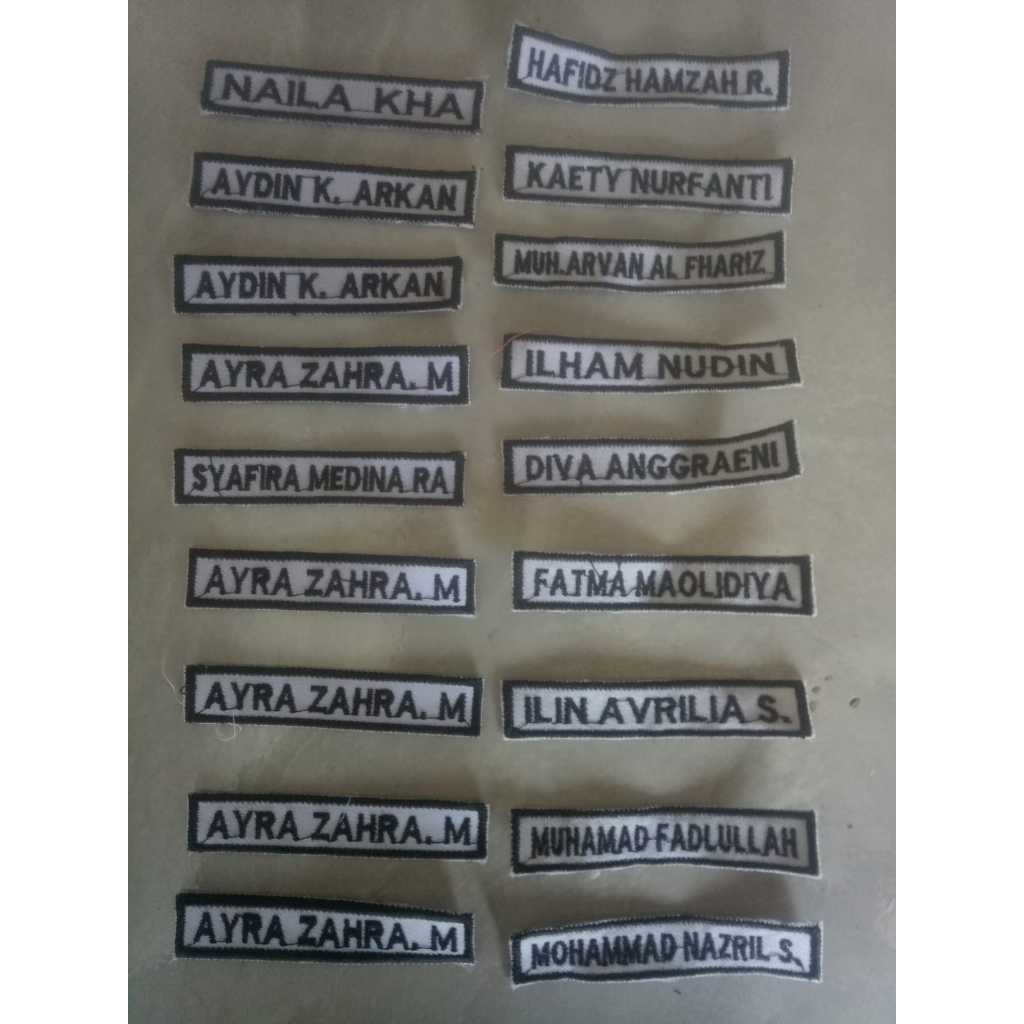 NAILA KHA
AYDIN K. ARKAN
AYDIN K. ARKAN
AYRA ZAHRA. M
SYAFIRA MEDINA RA
AYRA ZAHRA. M
AYRA ZAHRA. M
AYRA ZAHRA. M
AYRA ZAHRA. M
HAFIDZ HAMZAH R.
KAETY NURFANTI
MUH.ARVAN AL FHARIZ
ILHAM NUDIN
DIVA ANGGRAENI
FATMA MAOLIDIYA
ILIN AVRILIA S.
MUHAMAD FADLULLAH
MOHAMMAD NAZRIL S.